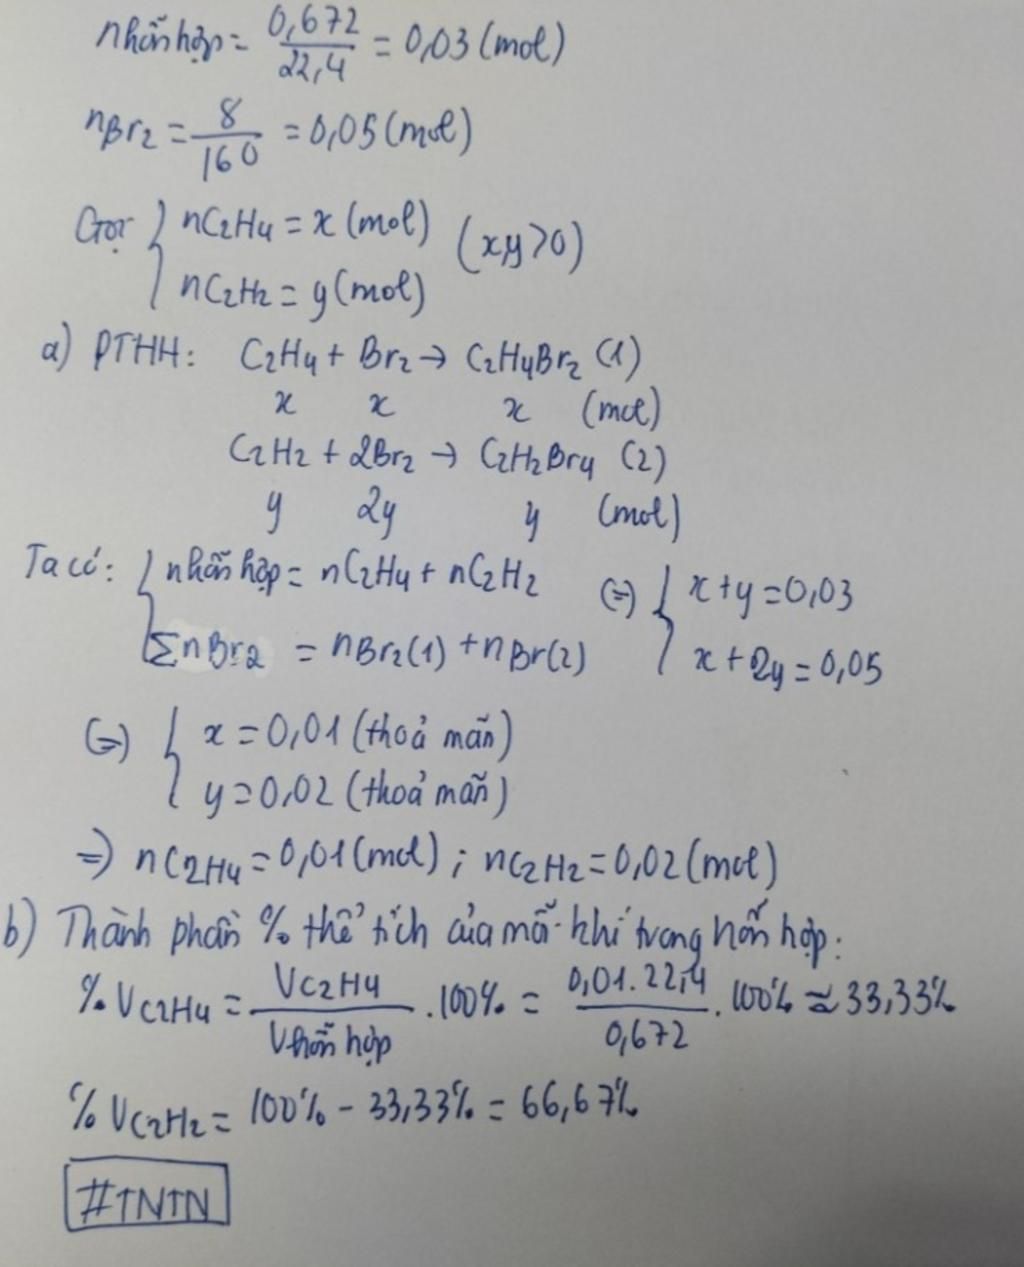 nhỗn hợp = 0,672/22,4 = 0,03 (mol)
nBr2 = 8/160 = 0,05 (mol)
Gọi { nC2H4 = x (mol) (x,y>0)
nC2H2 = y (mol)
a) PTHH: C2H4 + Br2 → C2H4Br2 (1)
x x x (mol)
C2H2 + 2Br2 → C2H2Br4 (2)
y 2y y (mol)
Ta có: { nhỗn hợp = nC2H4 + nC2H2 (=) { x+y = 0,03
ΣnBr2 = nBr2(1) + nBr(2) x + 2y = 0,05
(=) { x = 0,01 (thoả mãn)
y = 0,02 (thoả mãn)
=) nC2H4 = 0,01 (mol) ; nC2H2 = 0,02 (mol)
b) Thành phần % thể tích của mỗi khí trong hỗn hợp:
% VC2H4 = VC2H4/Vhỗn hợp . 100% = 0,01.22,4/0,672 . 100% ≈ 33,33%
% VC2H2 = 100% - 33,33% = 66,67%
#TNTN